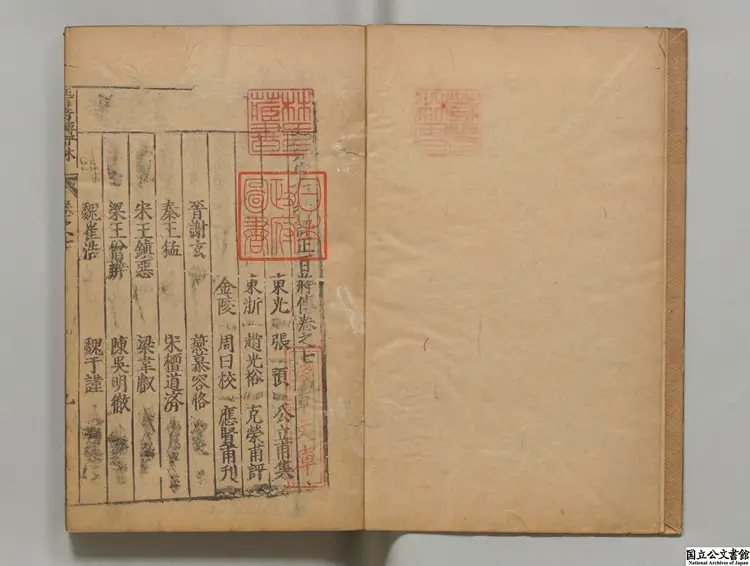 正百將傳卷之七
東光 張預 公立甫集
東浙 趙光裕 克榮甫評
金陵 周曰校 應賢甫刊
晉謝玄 慕容恪
秦王猛 宋檀道濟
宋王鎮惡 梁韋叡
梁王僧辯 陳吳明徹
魏崔浩 魏于謹
林氏藏書
日本政府圖書
文庫
国立公文書館
National Archives of Japan